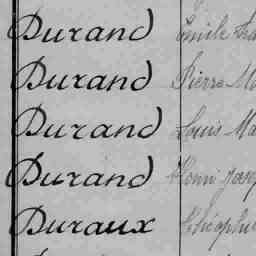 Durand Emile
Durand Pierre
Durand Louis
Durand Henri
Duraux Théophile